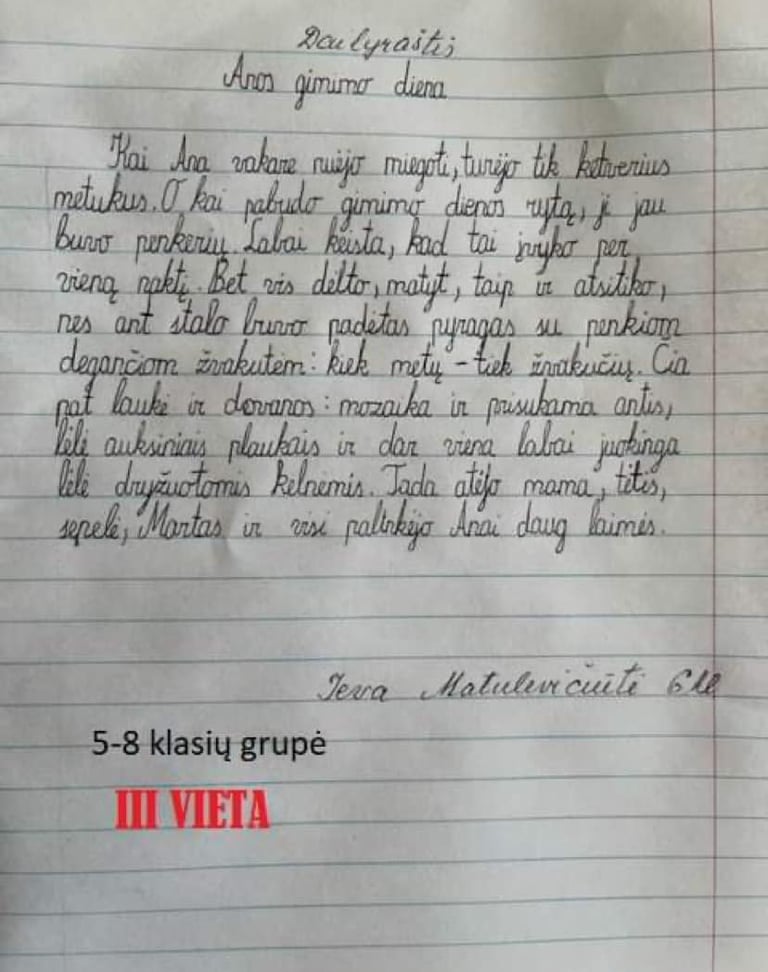 Dailyraštis
Anos gimimo diena
Kai Ana vakare nuėjo miegoti, turėjo tik ketverius
metukus. O kai pabudo gimimo dienos rytą, ji jau
buvo penkerių. Labai keista, kad tai įvyko per
vieną naktį. Bet vis dėlto, matyt, taip ir atsitiko,
nes ant stalo buvo padėtas pyragas su penkiom
degančiom žvakutėm: kiek metų - tiek žvakučių. Čia
pat laukė ir dovanos: mozaika ir prisukama antis,
lėlė auksiniais plaukais ir dar viena labai juokinga
lėlė dryžuotomis kelnėmis. Tada atėjo mama, tėtis,
sepelė, Martas ir visi palinkėjo Anai daug laimės.
Ieva Matulevičiūtė 6kl
5-8 klasių grupė
III VIETA